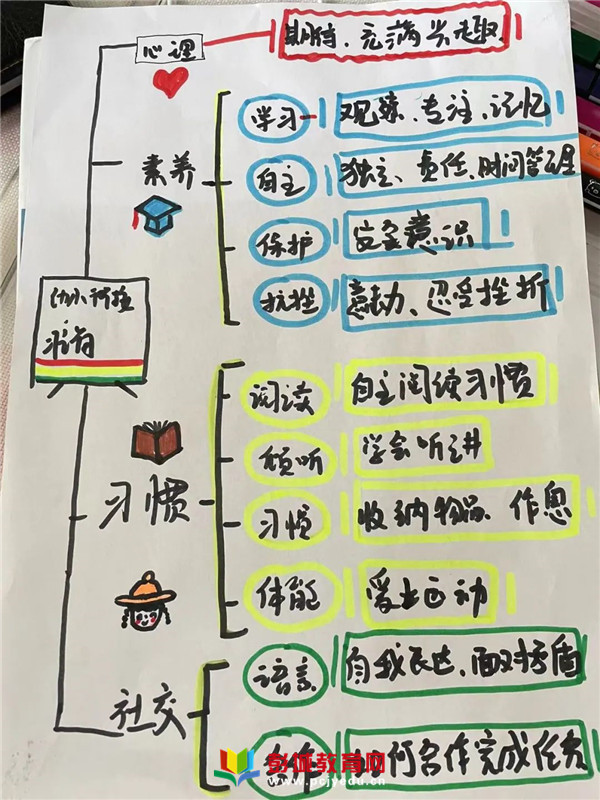 心理
期待、充满兴趣
素养
学习
观察、专注、记忆
自主
独立、责任、时间管理
保护
安全意识
抗挫
意志力、忍受挫折
幼小衔接
习惯
阅读
自主阅读习惯
倾听
学会听讲
习惯
收纳物品、作息
体能
爱上运动
社交
语言
自我表达、面对矛盾
如何合作完成任务
彭城教育网
www.pcjyedu.cn